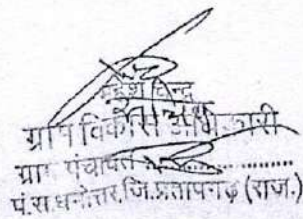 महेश चन्द्र
ग्राम विकास अधिकारी
ग्राम पंचायत ....................
पं.स.धनोत्तर,जि.प्रतापगढ़ (राज.)